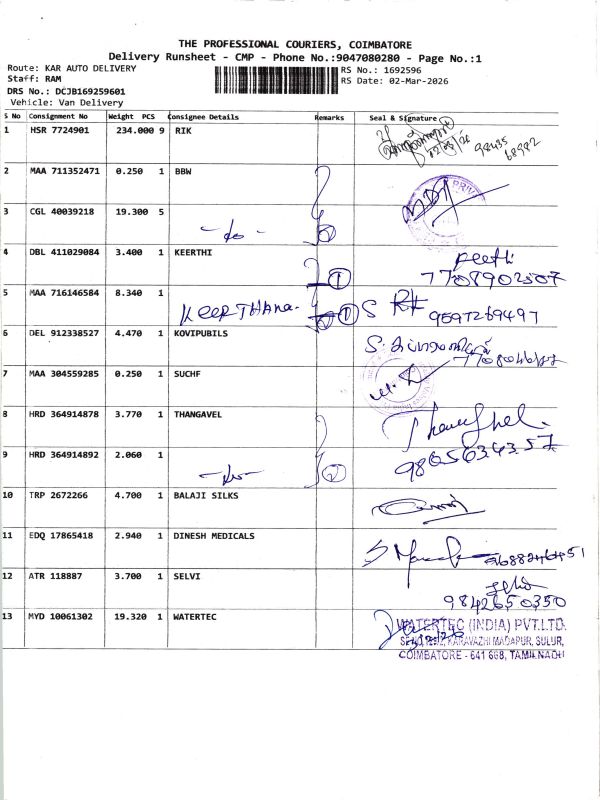 THE PROFESSIONAL COURIERS, COIMBATORE
Delivery Runsheet - CMP - Phone No.:9047080280 - Page No.:1
Route: KAR AUTO DELIVERY
RS No.: 1692596
Staff: RAM
RS Date: 02-Mar-2026
DRS No.: DCJB169259601
Vehicle: Van Delivery
S No Consignment No Weight PCS Consignee Details Remarks Seal & Signature
1 HSR 7724901 234.000 9 RIK
98435
68992
2 MAA 711352471 0.250 1 BBW
3 CGL 40039218 19.300 5
-do- 2
4 DBL 411029084 3.400 1 KEERTHI
1
7708902507
5 MAA 716146584 8.340 1
KEERTHANA- 1 S 9597269497
6 DEL 912338527 4.470 1 KOVIPUBILS
7 MAA 304559285 0.250 1 SUCHF
8 HRD 364914878 3.770 1 THANGAVEL
Thangavel
9 HRD 364914892 2.060 1
-do- 2 9865634357
10 TRP 2672266 4.700 1 BALAJI SILKS
11 EDQ 17865418 2.940 1 DINESH MEDICALS
9688246451
12 ATR 118887 3.700 1 SELVI
9842650350
13 MYD 10061302 19.320 1 WATERTEC
WATERTEC (INDIA) PVT.LTD.
KARAVAZHI MADAPUR, SULUR,
COIMBATORE - 641 668, TAMILNADU